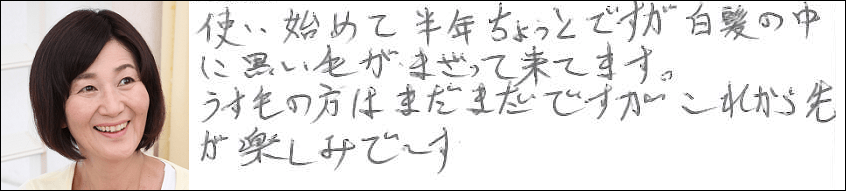 使い始めて半年ちょっとですが白髪の中
に黒い毛がまざって来てます。
うす毛の方はまだまだですが これから先
が楽しみで〜す